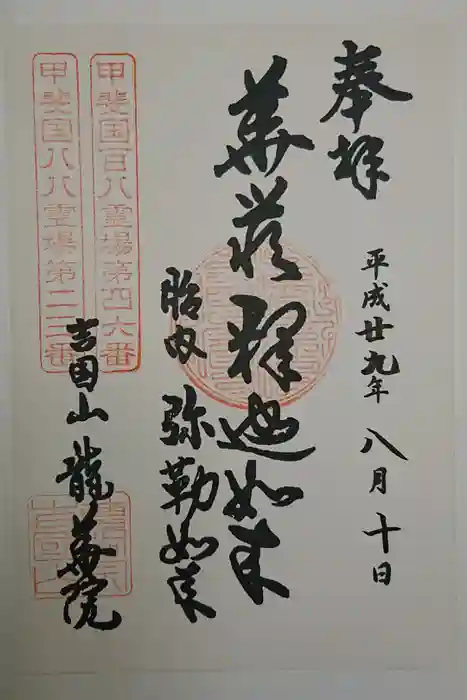 奉拝
平成廿九年八月十日
華蔵釋迦如来
胎内 弥勒如来
甲斐国百八霊場第四六番
甲斐国八八霊場第二三番
吉国山 龍華院